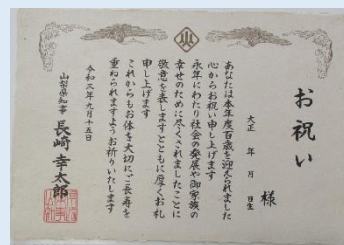 お祝い
様
大正　年　月　日生
あなたは本年度百歳を迎えられました
心からお祝い申し上げます
永年にわたり社会の発展や御家族の
幸せのために尽くされましたことに
敬意を表しますとともに厚くお礼
申し上げます
これからもお体を大切にご長寿を
重ねられますようお祈りいたします
令和三年九月十五日
山梨県知事 長崎幸太郎